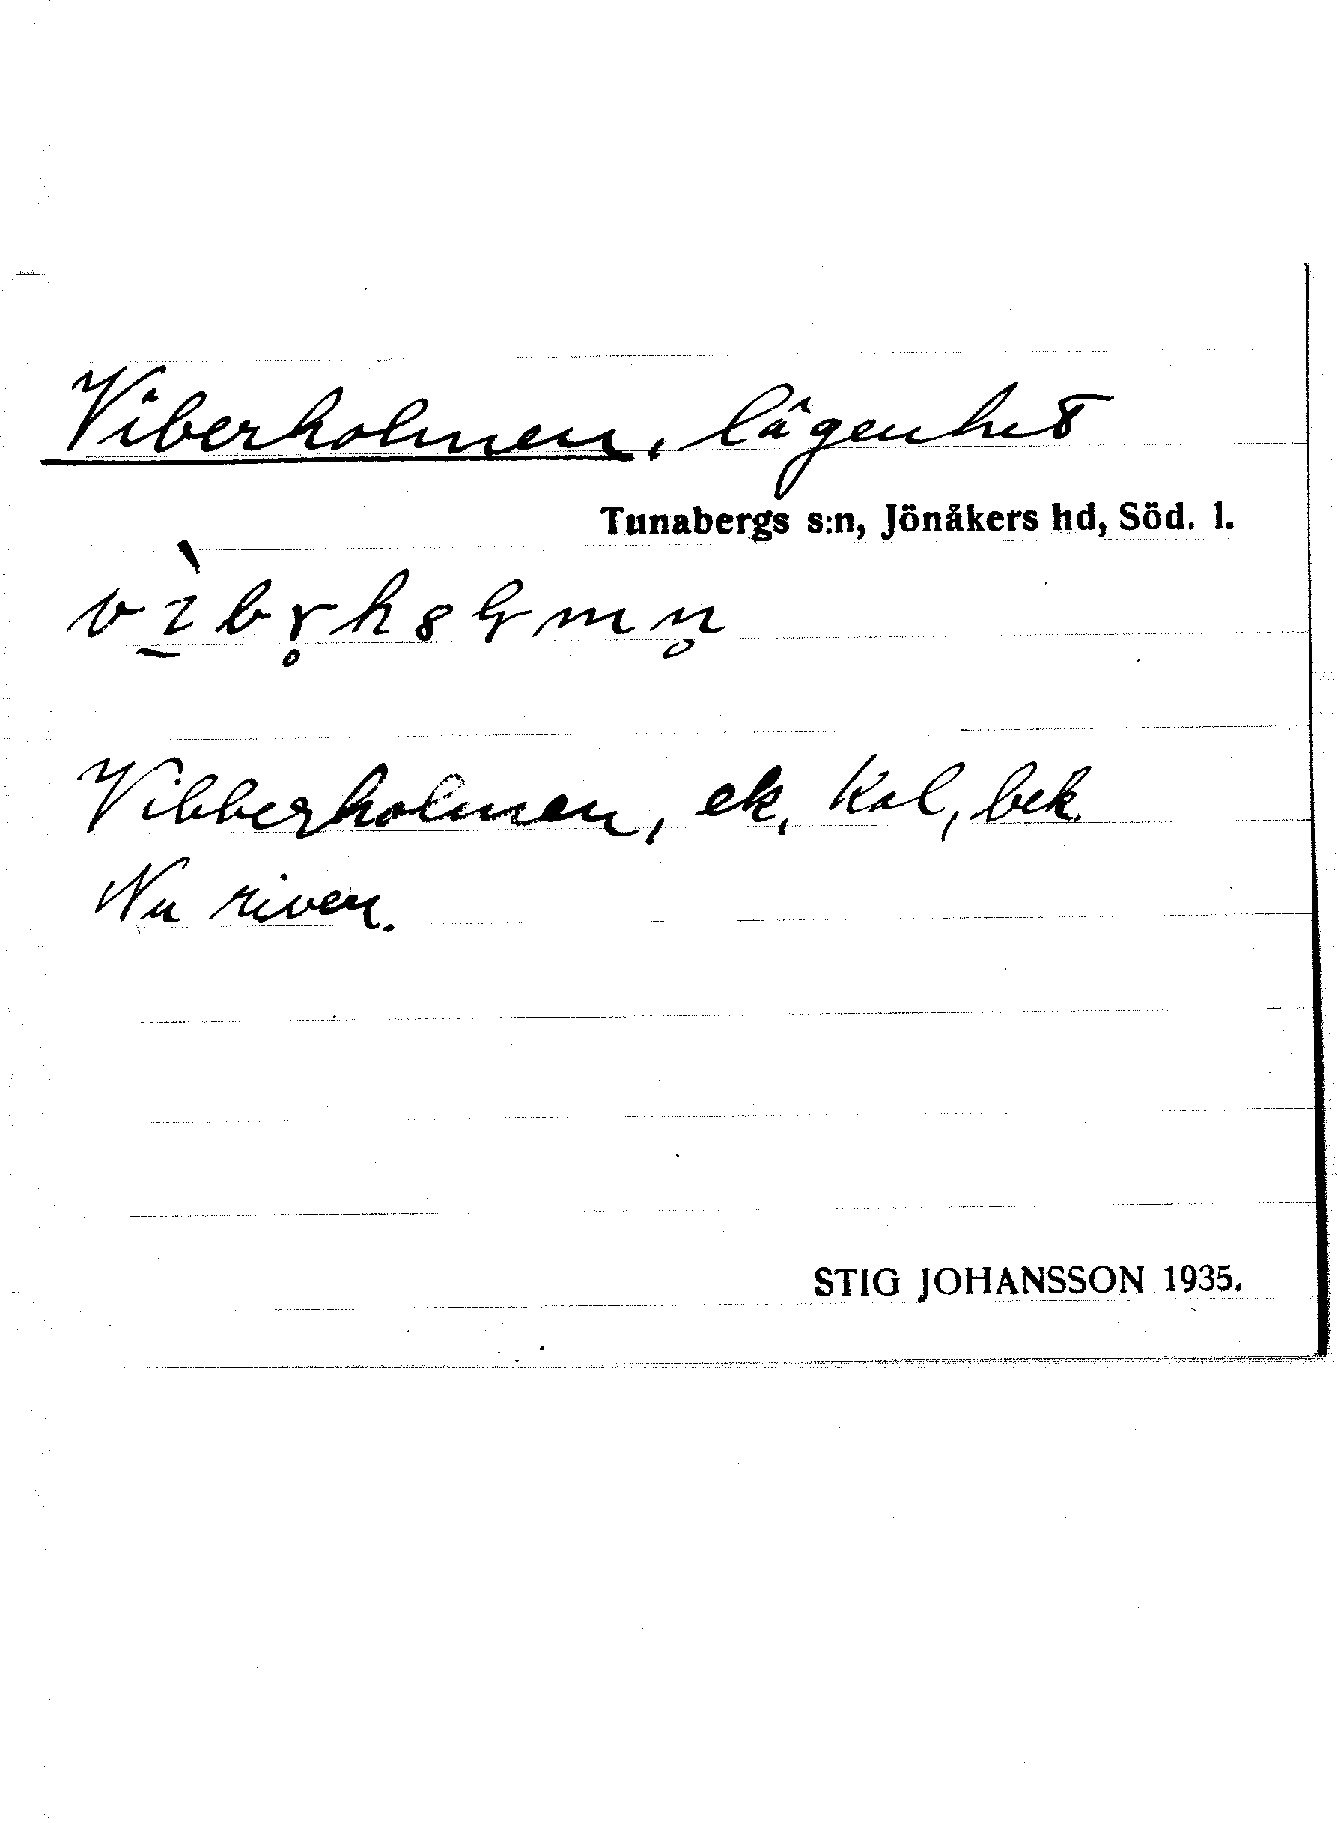 Viberholmen, lägenhet
Tunabergs s:n, Jönåkers hd, Söd. l.
Vibberholmen, ek. kal, bek.
Nu riven.
STIG JOHANSSON 1935.